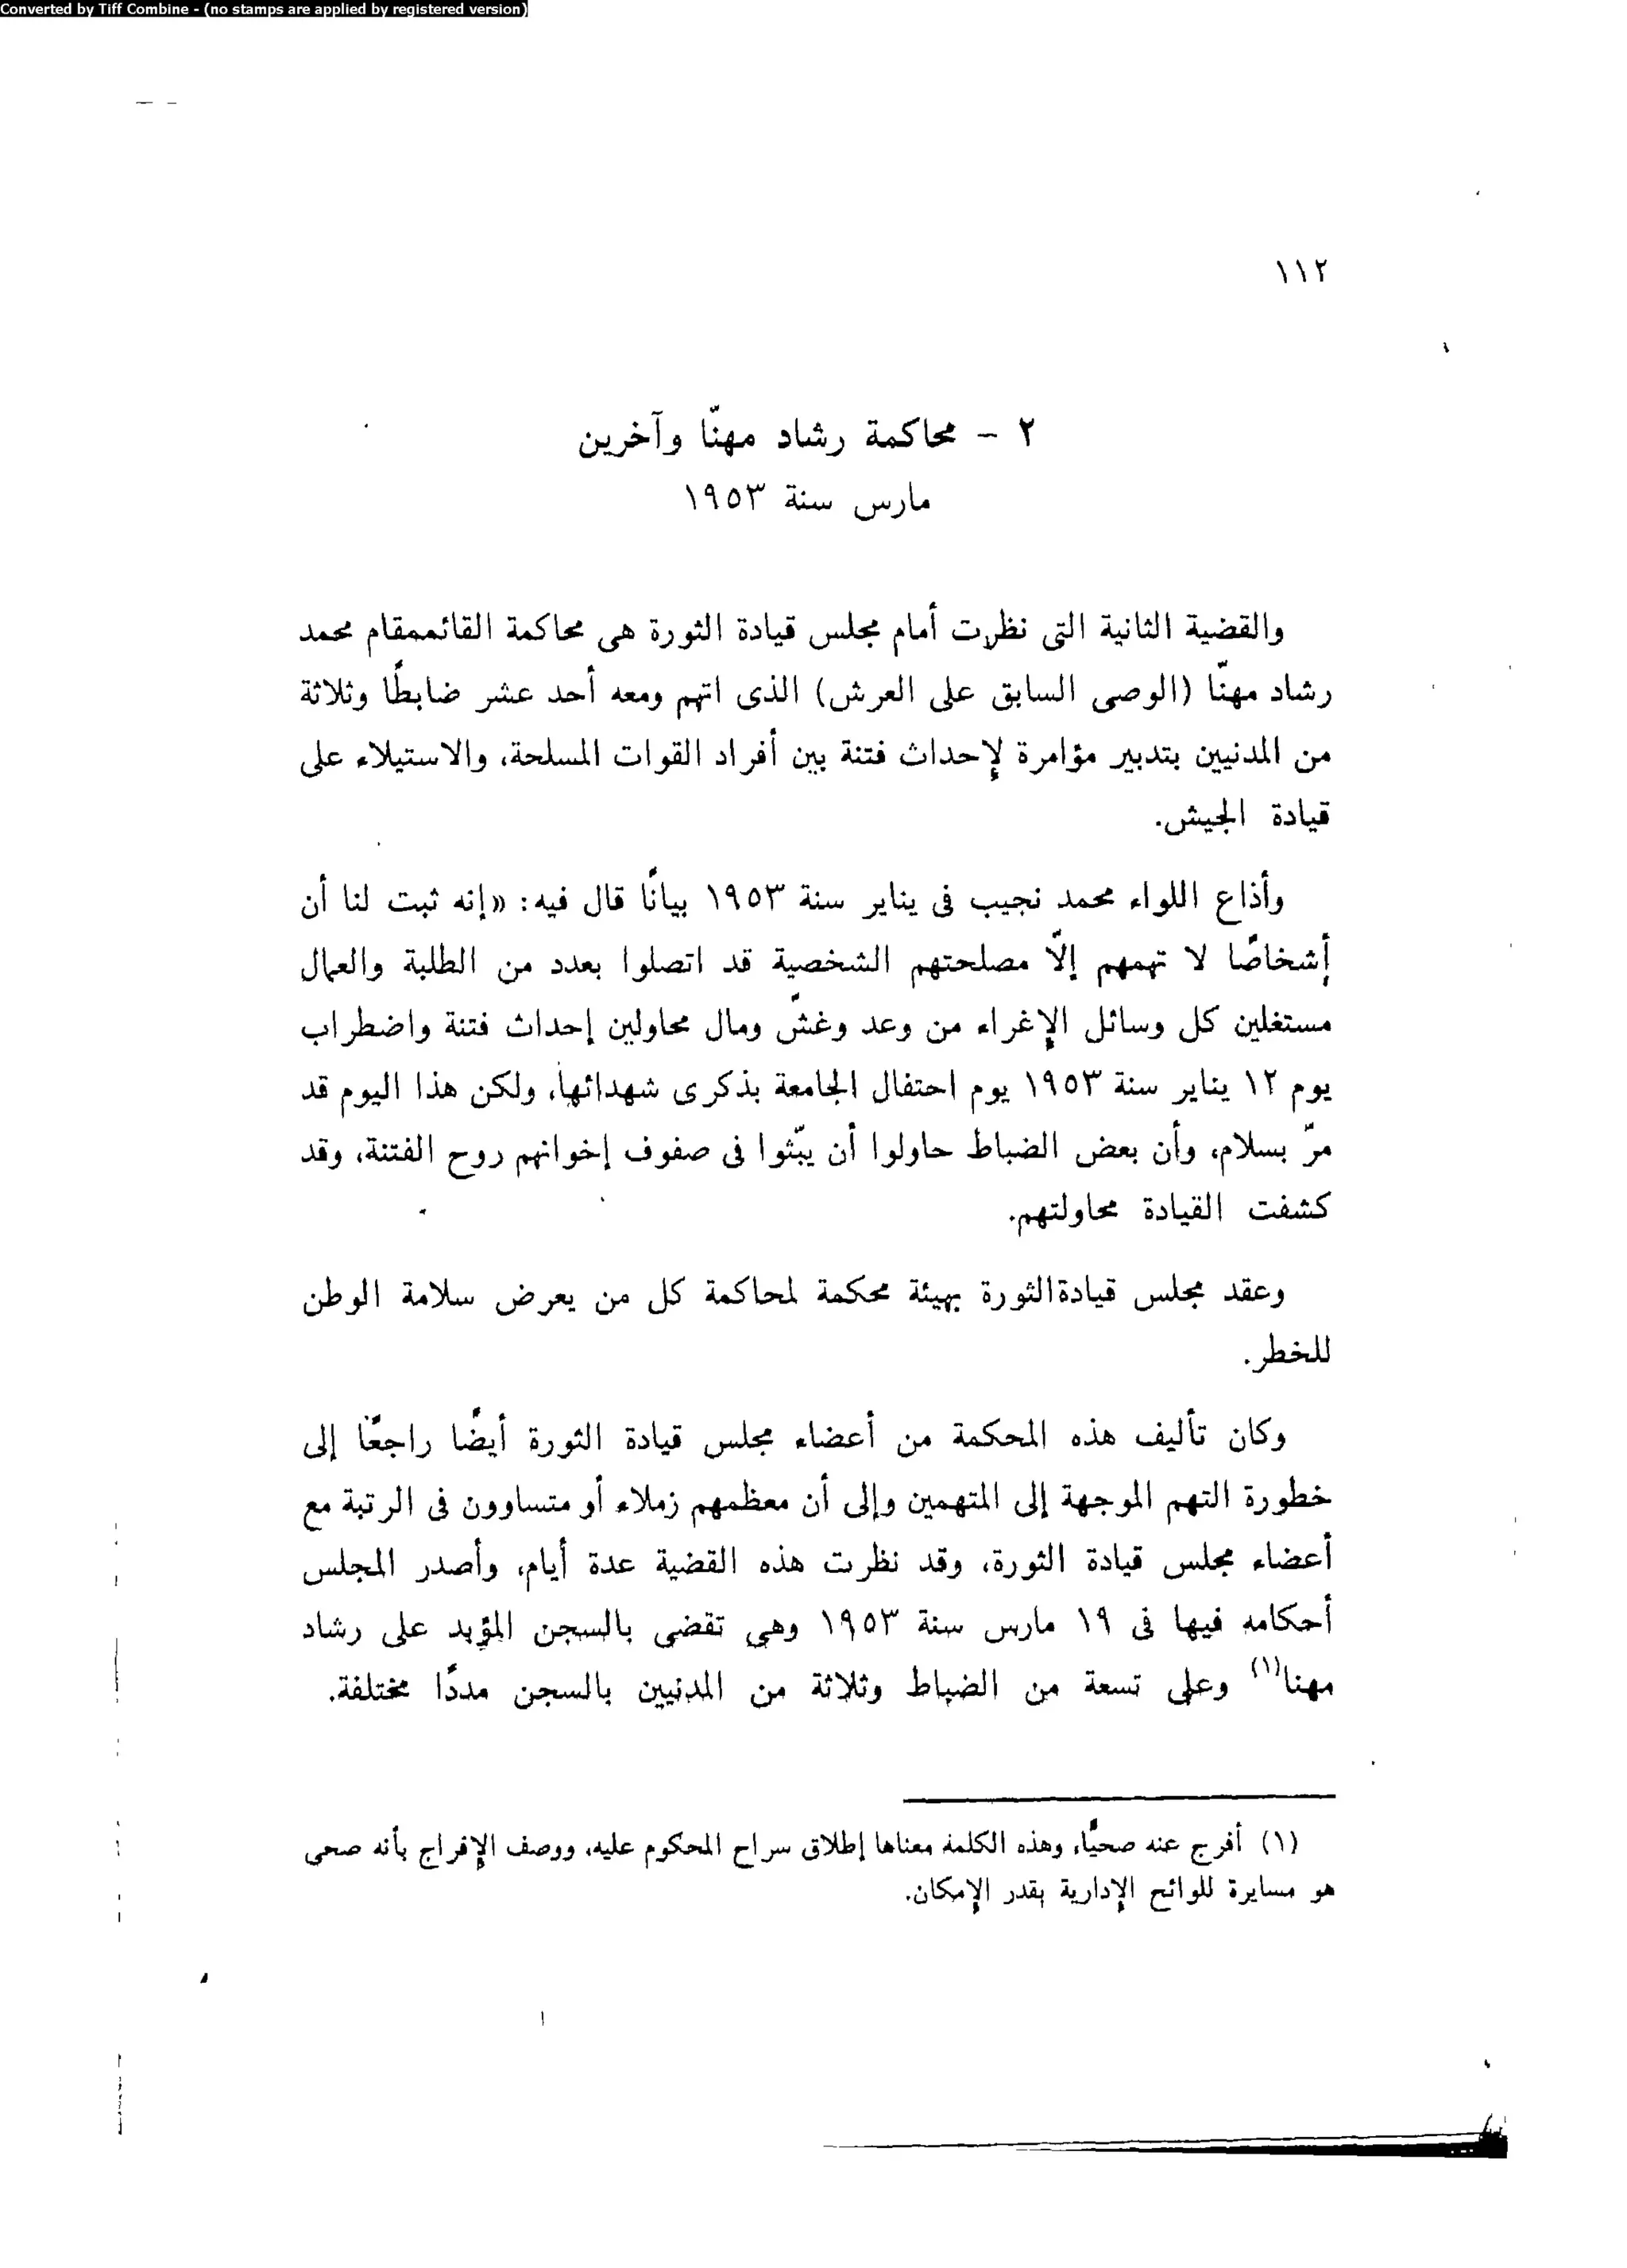 Converted by Tiff Combine - (no stamps are applied by registered version)
١١٢
٢ - محاكمة رشاد مهنّا وآخرين
مارس سنة ١٩٥٣
والقضية الثانية التى نظرت أمام مجلس قيادة الثورة هى محاكمة القائممقام محمد
رشاد مهنّا (الوصى السابق على العرش) الذى اتهم ومعه أحد عشر ضابطًا وثلاثة
من المدنيين بتدبير مؤامرة لإحداث فتنة بين أفراد القوات المسلحة، والاستيلاء على
قيادة الجيش.
وأذاع اللواء محمد نجيب فى يناير سنة ١٩٥٣ بيانًا قال فيه: «إنه ثبت لنا أن
أشخاصًا لا تهمهم إلّا مصلحتهم الشخصية قد اتصلوا بعدد من الطلبة والعمال
مستغلين كل وسائل الإغراء من وعد وغشّ ومال محاولين إحداث فتنة واضطراب
يوم ١٢ يناير سنة ١٩٥٣ يوم احتفال الجامعة بذكرى شهدائها، ولكن هذا اليوم قد
مرّ بسلام، وأن بعض الضباط حاولوا أن يبثّوا فى صفوف إخوانهم روح الفتنة، وقد
كشفت القيادة محاولتهم.
وعقد مجلس قيادة الثورة بهيئة محكمة لمحاكمة كل من يعرض سلامة الوطن
للخطر.
وكان تأليف هذه المحكمة من أعضاء مجلس قيادة الثورة أيضًا راجعًا إلى
خطورة التهم الموجهة إلى المتهمين وإلى أن معظمهم زملاء أو متساوون فى الرتبة مع
أعضاء مجلس قيادة الثورة، وقد نظرت هذه القضية عدة أيام، وأصدر المجلس
أحكامه فيها فى ١٩ مارس سنة ١٩٥٣ وهى تقضى بالسجن المؤبد على رشاد
مهنا(١) وعلى تسعة من الضباط وثلاثة من المدنيين بالسجن مددًا مختلفة.
(١) أفرج عنه صحيًّا، وهذه الكلمة معناها إطلاق سراح المحكوم عليه، ووصف الإفراج بأنه صحى
هو مسايرة للوائح الإدارية بقدر الإمكان.